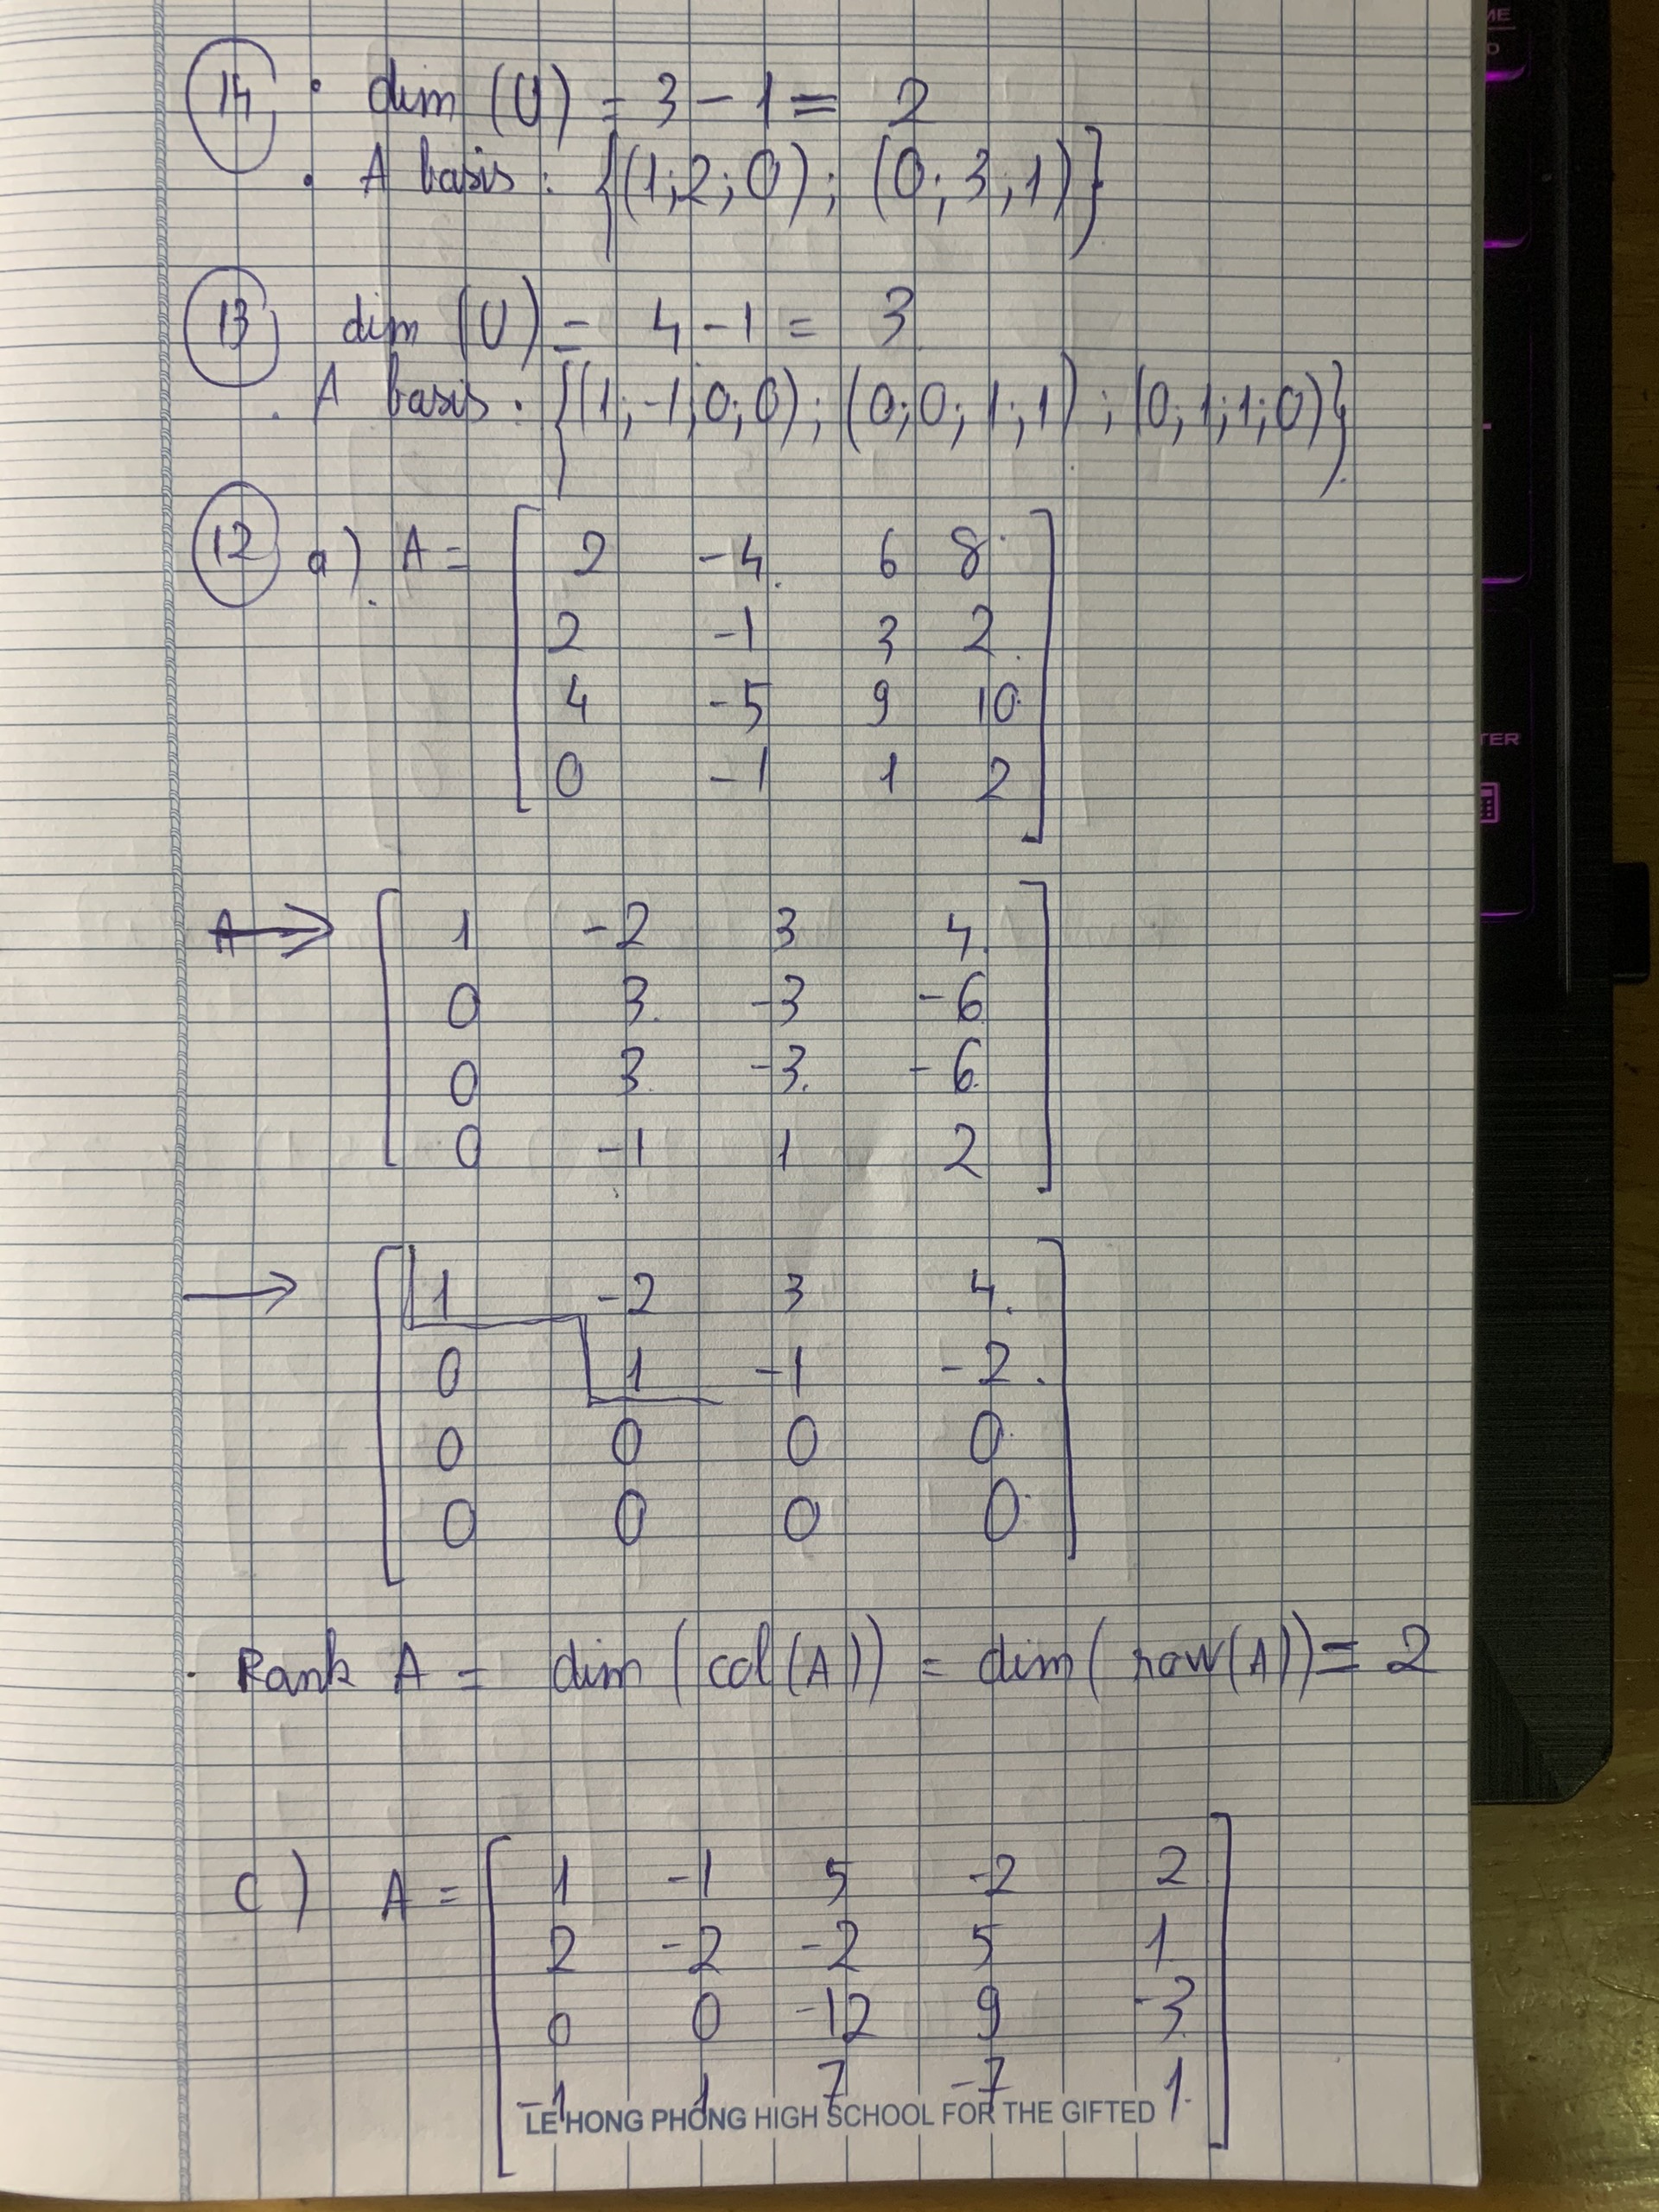 14 • dim (U) = 3 - 1 = 2
• A basis: {(1;2;0); (0;3;1)}
13 dim (U) = 4 - 1 = 3
. A basis: {(1;-1;0;0); (0;0;1;1); (0;1;1;0)}
12 a) A = [ 2 -4 6 8
2 -1 3 2
4 -5 9 10
0 -1 1 2 ]
→ [ 1 -2 3 4
0 3 -3 -6
0 3 -3 -6
0 -1 1 2 ]
→ [ 1 -2 3 4
0 1 -1 -2
0 0 0 0
0 0 0 0 ]
. Rank A = dim (col(A)) = dim (row(A)) = 2
c) A = [ 1 -1 5 -2 2
2 -2 -2 5 1
0 0 -12 9 -3
-1 1 7 -7 1 ]
LE HONG PHONG HIGH SCHOOL FOR THE GIFTED